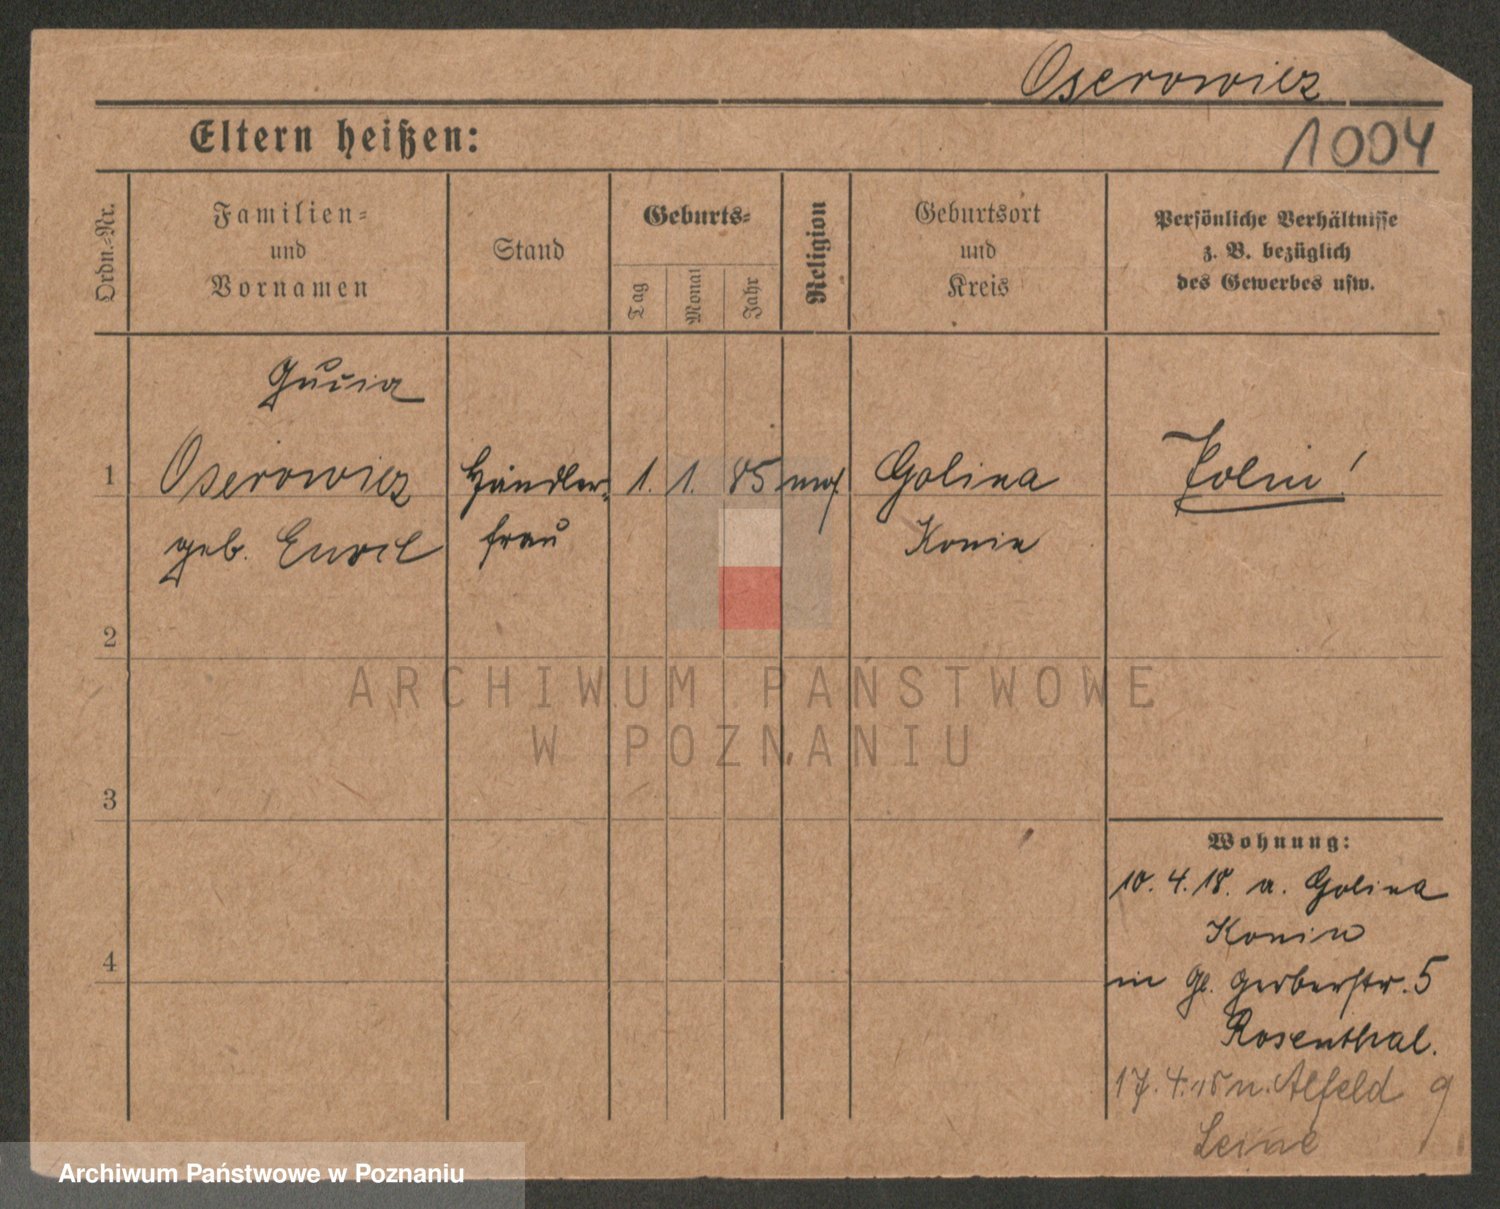 Oserowicz
Eltern heißen:
1004
Ordn.-Nr.
Familien-
und
Vornamen
Stand
Geburts-
Tag
Monat
Jahr
Religion
Geburtsort
und
Kreis
Persönliche Verhältnisse
z. B. bezüglich
des Gewerbes usw.
Gucia
1 Oserowicz Händler- 1. 1. 85 mos. Golina Polin!
geb. frau Konin
2
3
4
Wohnung:
10. 4. 18. a. Golina
Konin
in Gr. Gerberstr. 5
Rosenthal.
17. 4. 18 n. Alfeld
Leine
ARCHIWUM PAŃSTWOWE
W POZNANIU
Archiwum Państwowe w Poznaniu